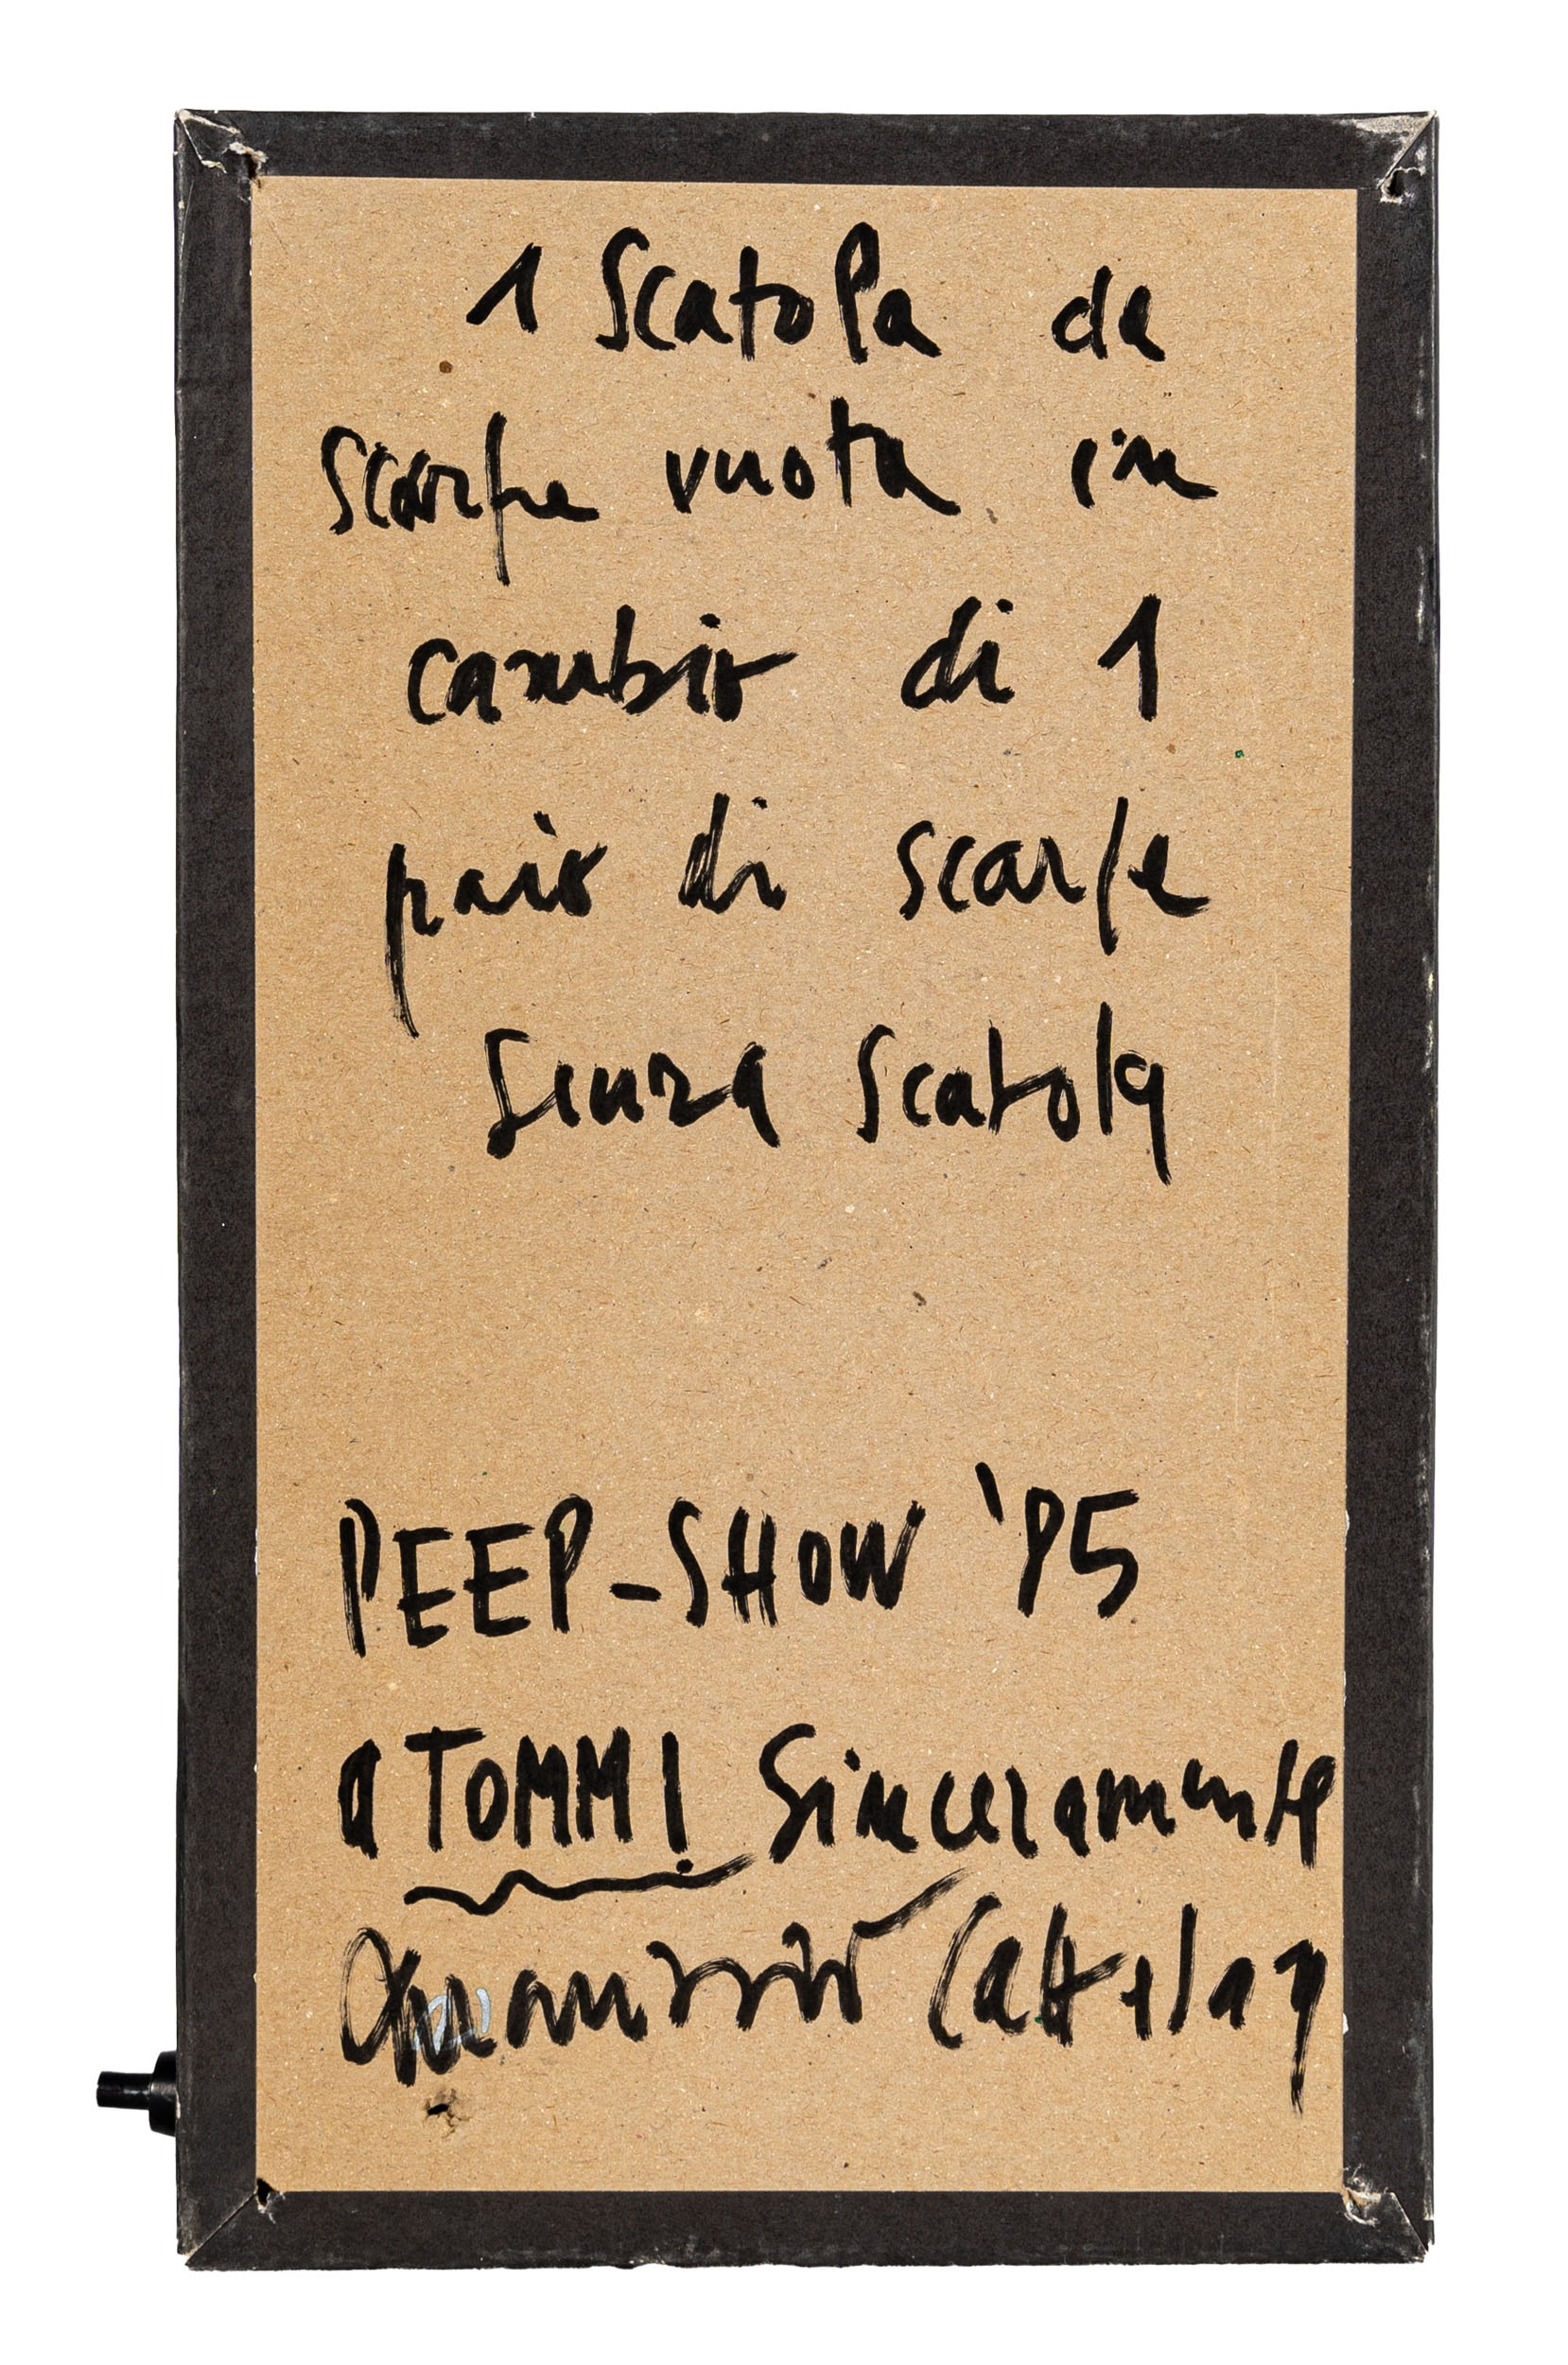 1 Scatola da
scarpe vuota in
cambio di 1
paio di scarpe
senza scatola
PEEP-SHOW '95
a TOMMI Sinceramente
Maurizio Cattelan